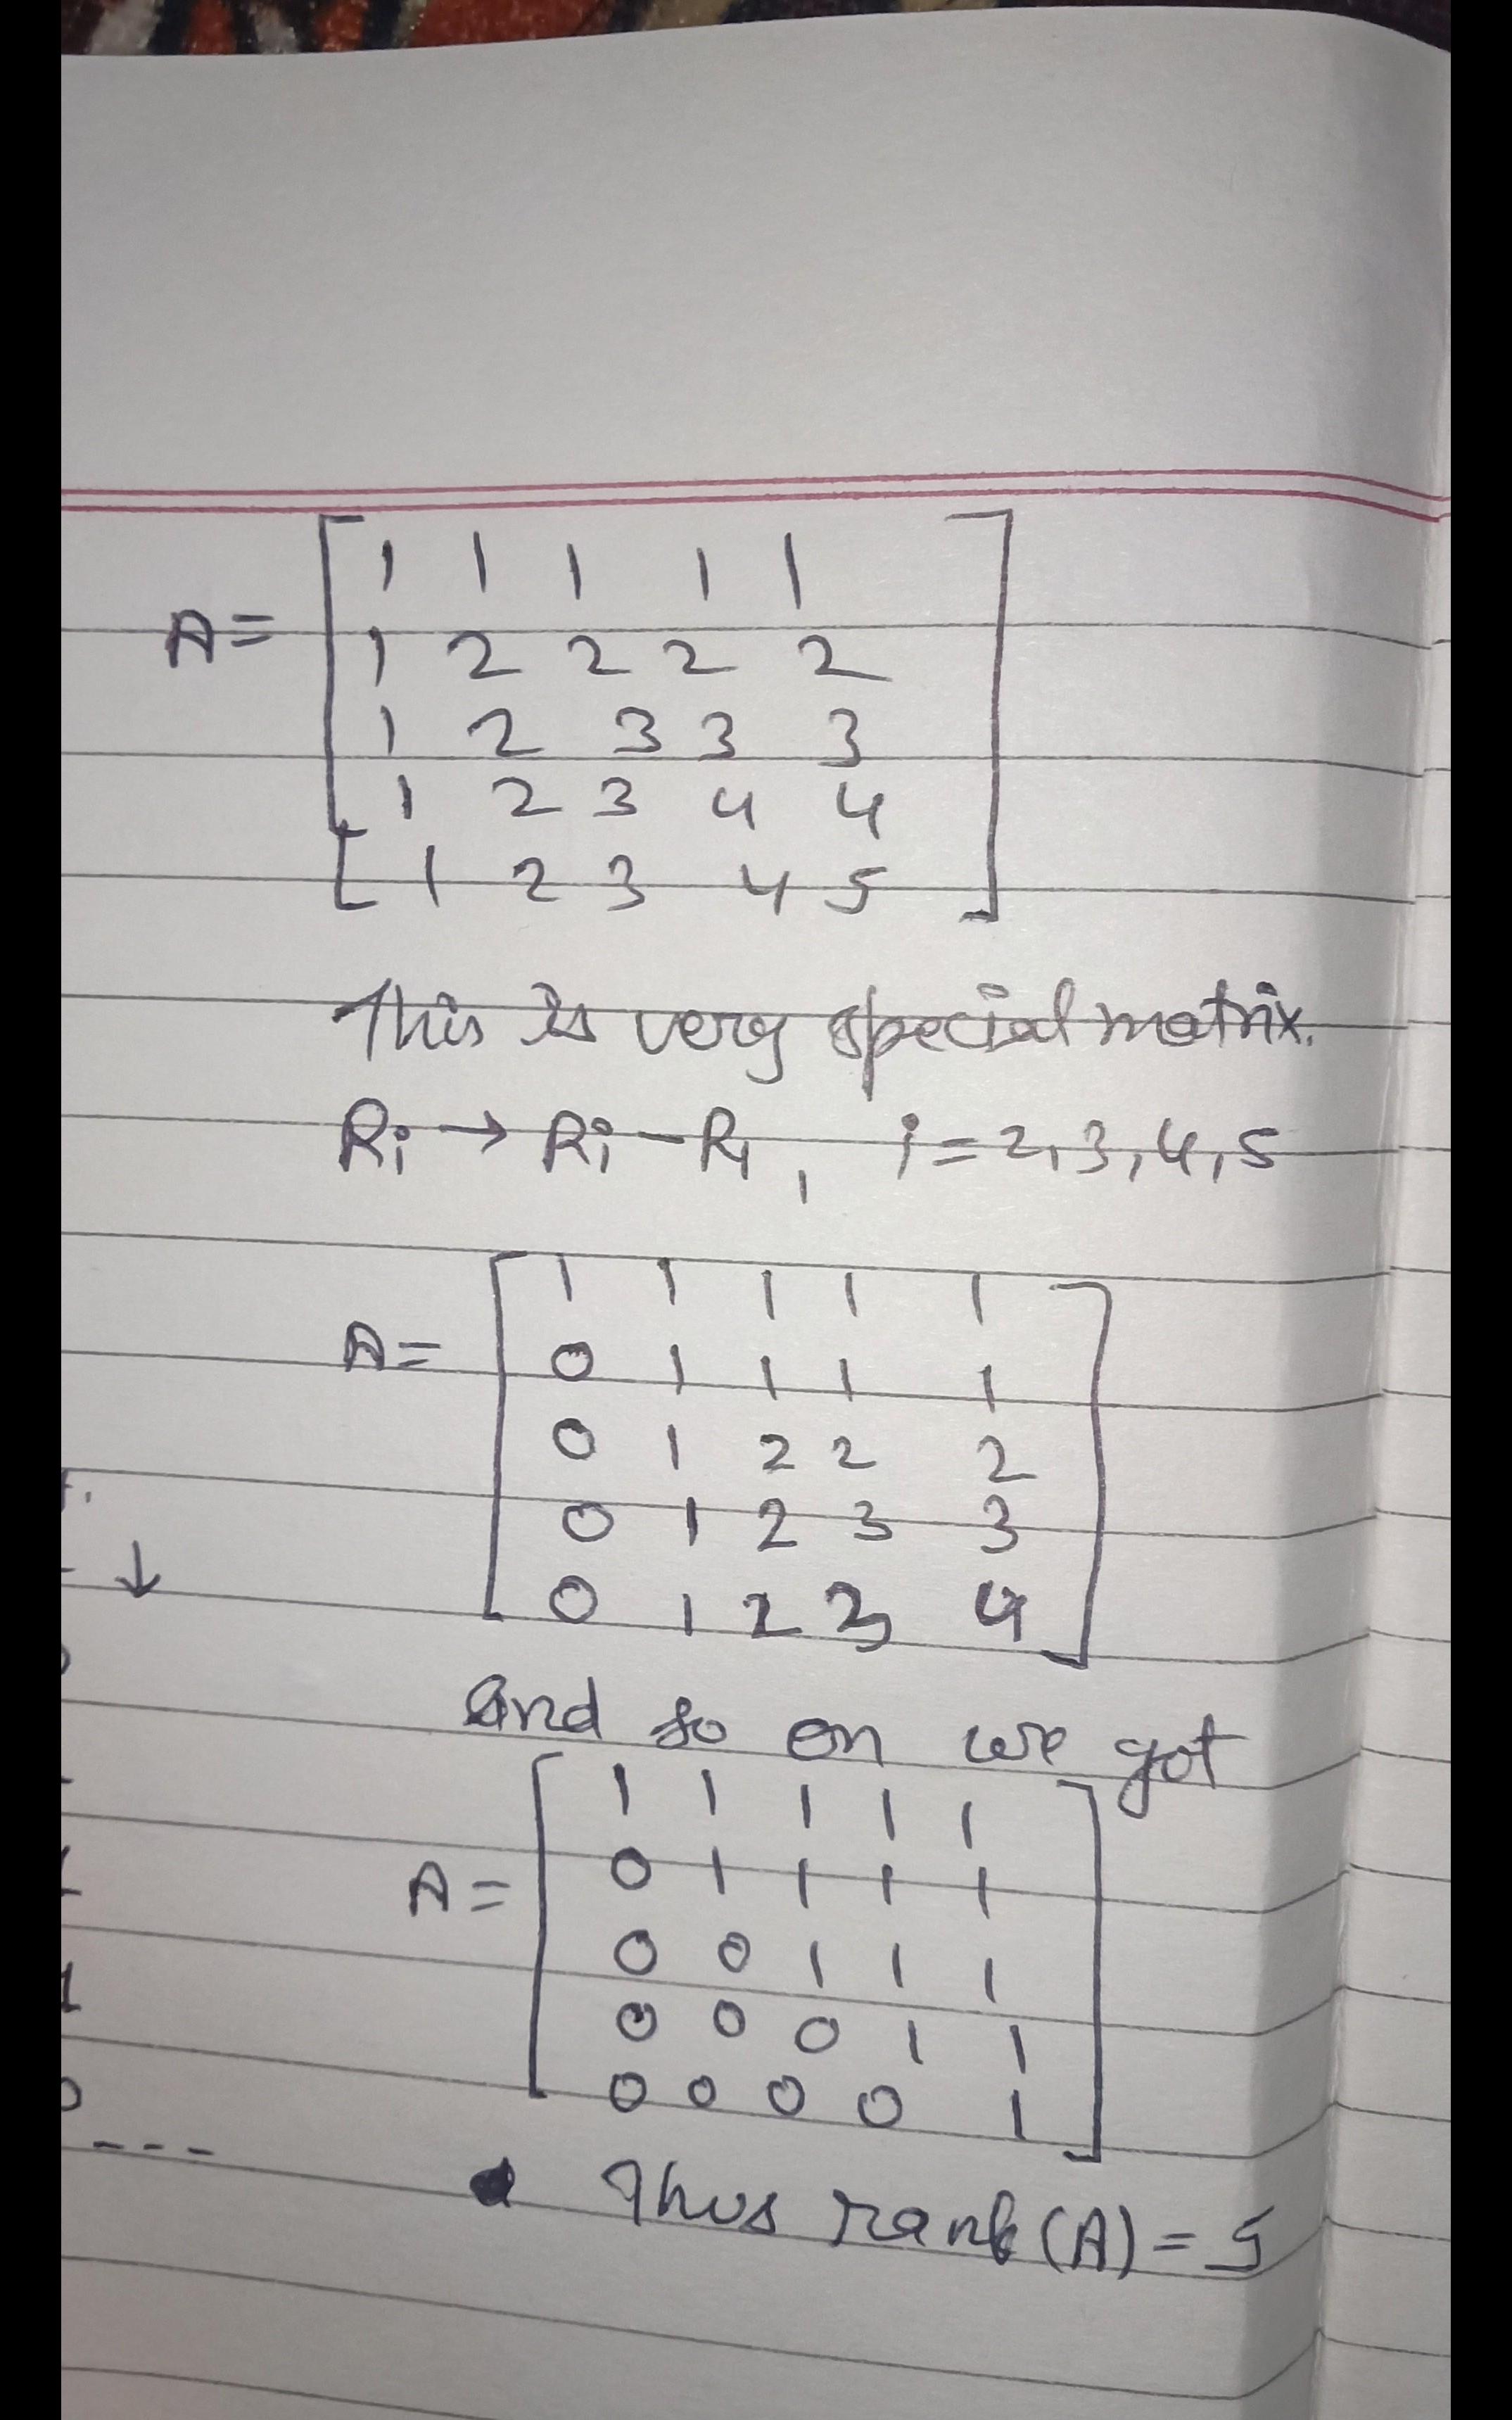 A = [ 1 1 1 1 1
1 2 2 2 2
1 2 3 3 3
1 2 3 4 4
1 2 3 4 5 ]
This is very special matrix.
Ri → Ri – R1, i = 2, 3, 4, 5
A = [ 1 1 1 1 1
0 1 1 1 1
0 1 2 2 2
0 1 2 3 3
0 1 2 3 4 ]
↓
And so on we got
A = [ 1 1 1 1 1
0 1 1 1 1
0 0 1 1 1
0 0 0 1 1
0 0 0 0 1 ]
---
Thus rank(A) = 5